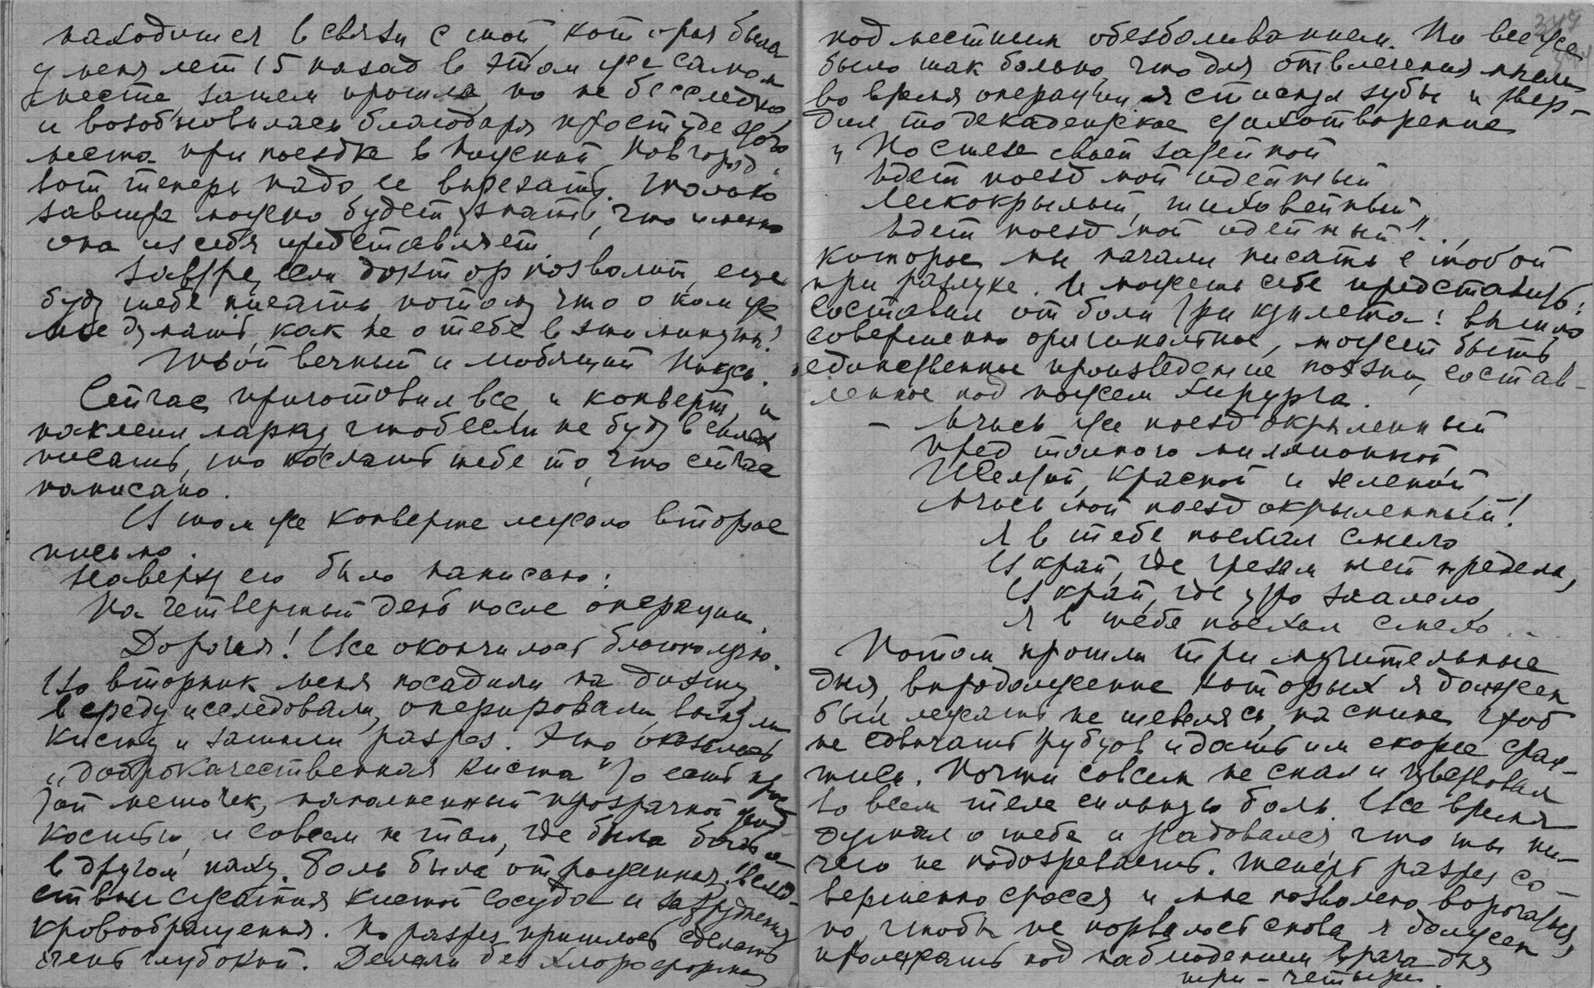 находится в связи с той, которая была
у меня лет 15 назад в этом же самом
месте, затем прошла, но не бесследно,
и возобновилась благодаря простуде этого
места при поездке в Нижний Новгород.
Вот теперь надо ее вырезать. Только
завтра можно будет узнать, что именно
она из себя представляет.
Завтра, если доктор позволит, еще
буду тебе писать, потому что о ком же
мне думать, как не о тебе в эти минуты?
Твой вечный и любящий
Сейчас приготовил все, и конверт, и
наклеил марку, чтоб если не буду в силах
писать, то послать тебе то, что сейчас
написано.
В том же конверте лежало второе
письмо.
Наверху его было написано:
На четвертый день после операции.
Дорогая! Все окончилось благополучно.
Во вторник меня посадили на диэту,
в среду исследовали, оперировали, вынули
кисту и зашили разрез. Это оказалась
„доброкачественная киста", то есть
мешочек, наполненный прозрачной жид-
костью, и совсем не там, где была боль, а
в другом паху. Боль была отраженная, вслед-
ствии сжатия кистой сосуда и затруднения
кровообращения. Но разрез пришлось сделать
очень глубокий. Делали без хлороформа,
под местным обезболиванием. Но все же
было так больно, что для отвлечения мысли
во время операции я стискал зубы и твер-
дил то декадентское стихотворение
„По стезе своей
Идет поезд мой идейный
Легкокрылый, тиховейный
Идет поезд мой идейный"...,
которое мы начали писать с тобой
при разлуке. И можешь себе представить:
составил от боли три куплета! Вышло
совершенно оригинальное, может быть
единственное произведение поэзии, состав-
ленное под ножем хирурга.
– Мчись же поезд окрыленный
Пред толпою миллионной,
Желтый, красный и зеленый,
Мчись мой поезд окрыленный!
Я в тебе поехал смело
В край, где грезам нет предела,
В край, где утро заалело,
Я в тебе поехал смело...
Потом прошли три мучительные
дня, впродолжение которых я должен
был лежать не шевелясь, на спине, чтоб
не сдвигать рубцов и дать им скорее срас-
тись. Почти совсем не спал и чувствовал
во всем теле сильную боль. Все время
думал о тебе и радовался, что ты ни-
чего не подозреваешь. Теперь разрез со-
вершенно сросся и мне позволено ворочаться,
но чтобы не порвалось снова я должен
пролежать под наблюдением врача дня
три – четыре.